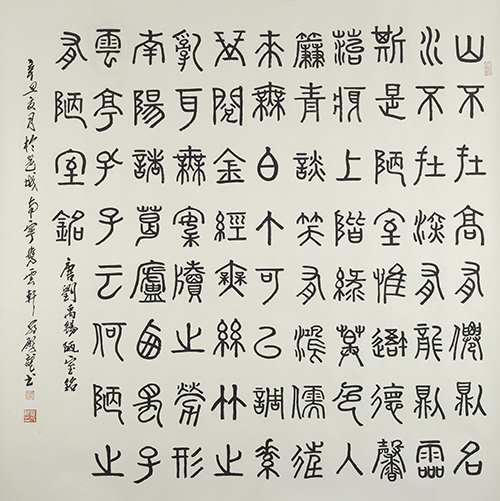 山不在高有僊則名
水不在深有龍則靈
斯是陋室惟吾德馨
苔痕上階綠草色入
簾青談笑有鴻儒往
來無白丁可以調素
琴閱金經無絲竹之
亂耳無案牘之勞形
南陽諸葛廬西蜀子
雲亭孔子云何陋之
有陋室銘
唐劉禹錫陋室銘
辛丑夏月於邕城南寧雲軒書